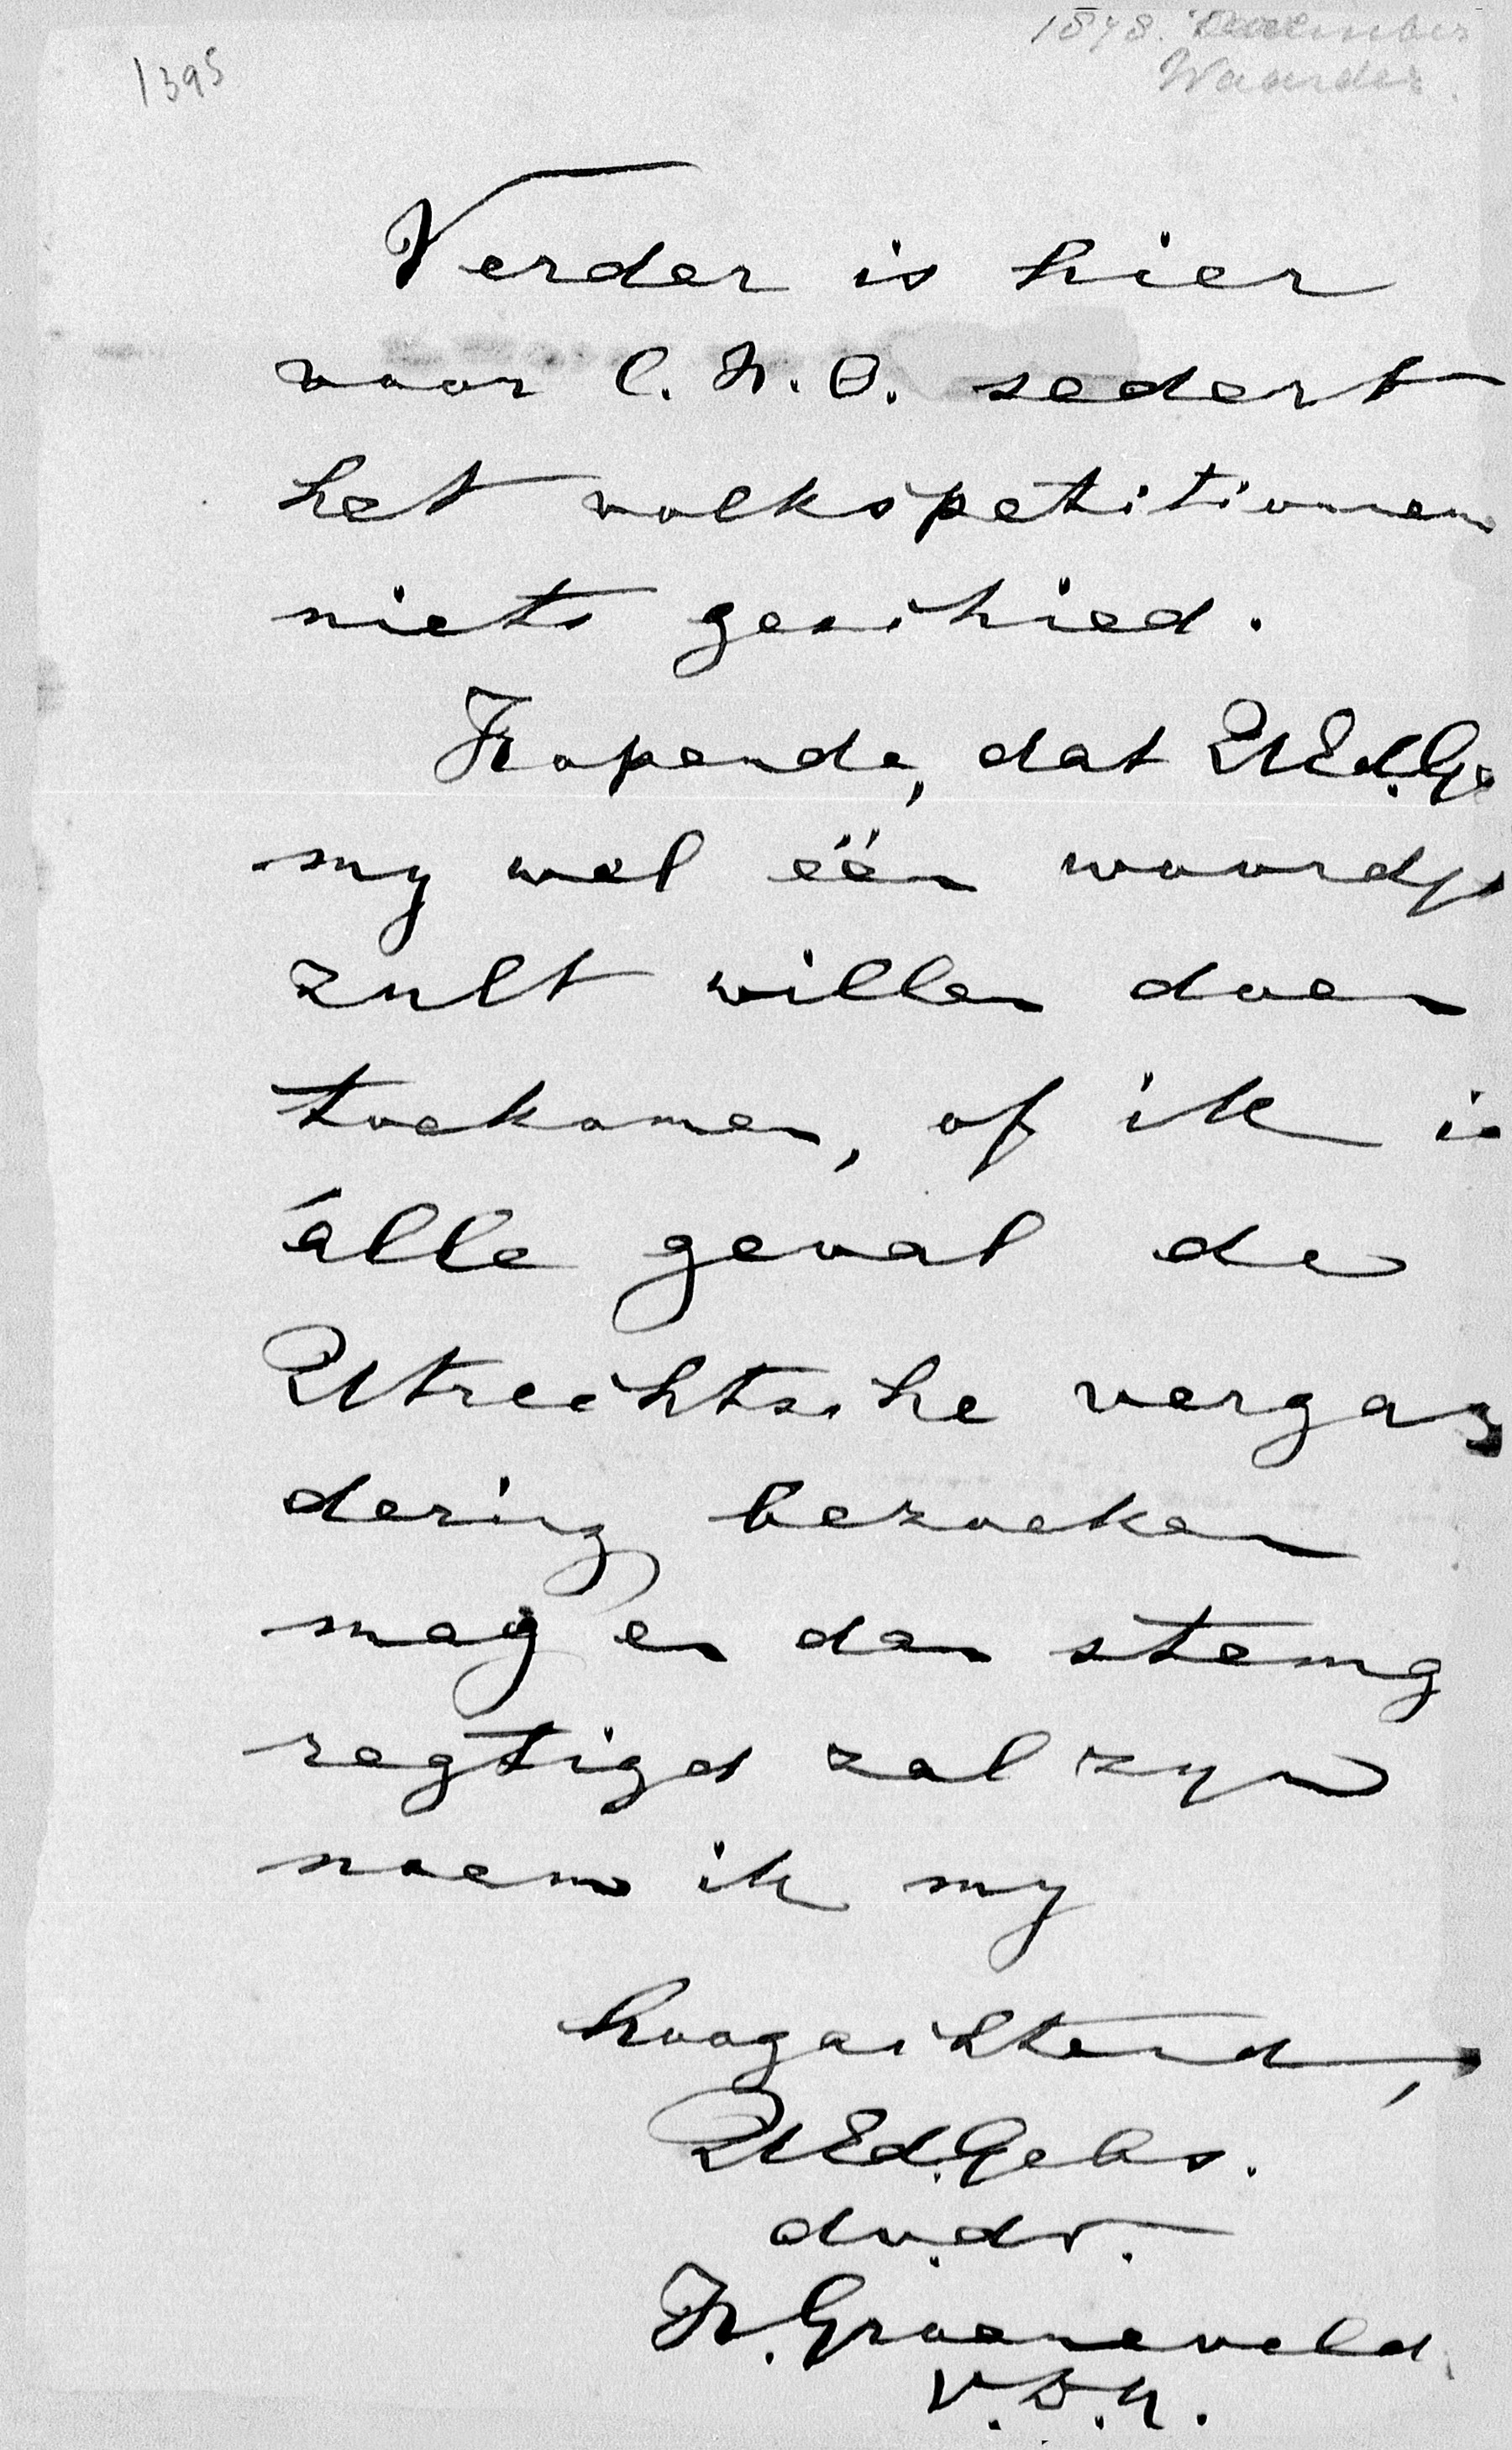 1395
1878. December
Waarder.
Verder is hier
voor C. N. O. sedert
het volkspetitionnem
niets geschied.
Hopende, dat UEd.Ge
my wel één woordje
zult willen doen
toekomen, of ik in
álle geval de
Utrechtsche verga-
dering bezoeken
mag en dan stemg
regtigd zal zyn
noem ik my
hoogachtend,
UEd.Gebs.
dv.dr.
H. Groeneveld
V.D.M.